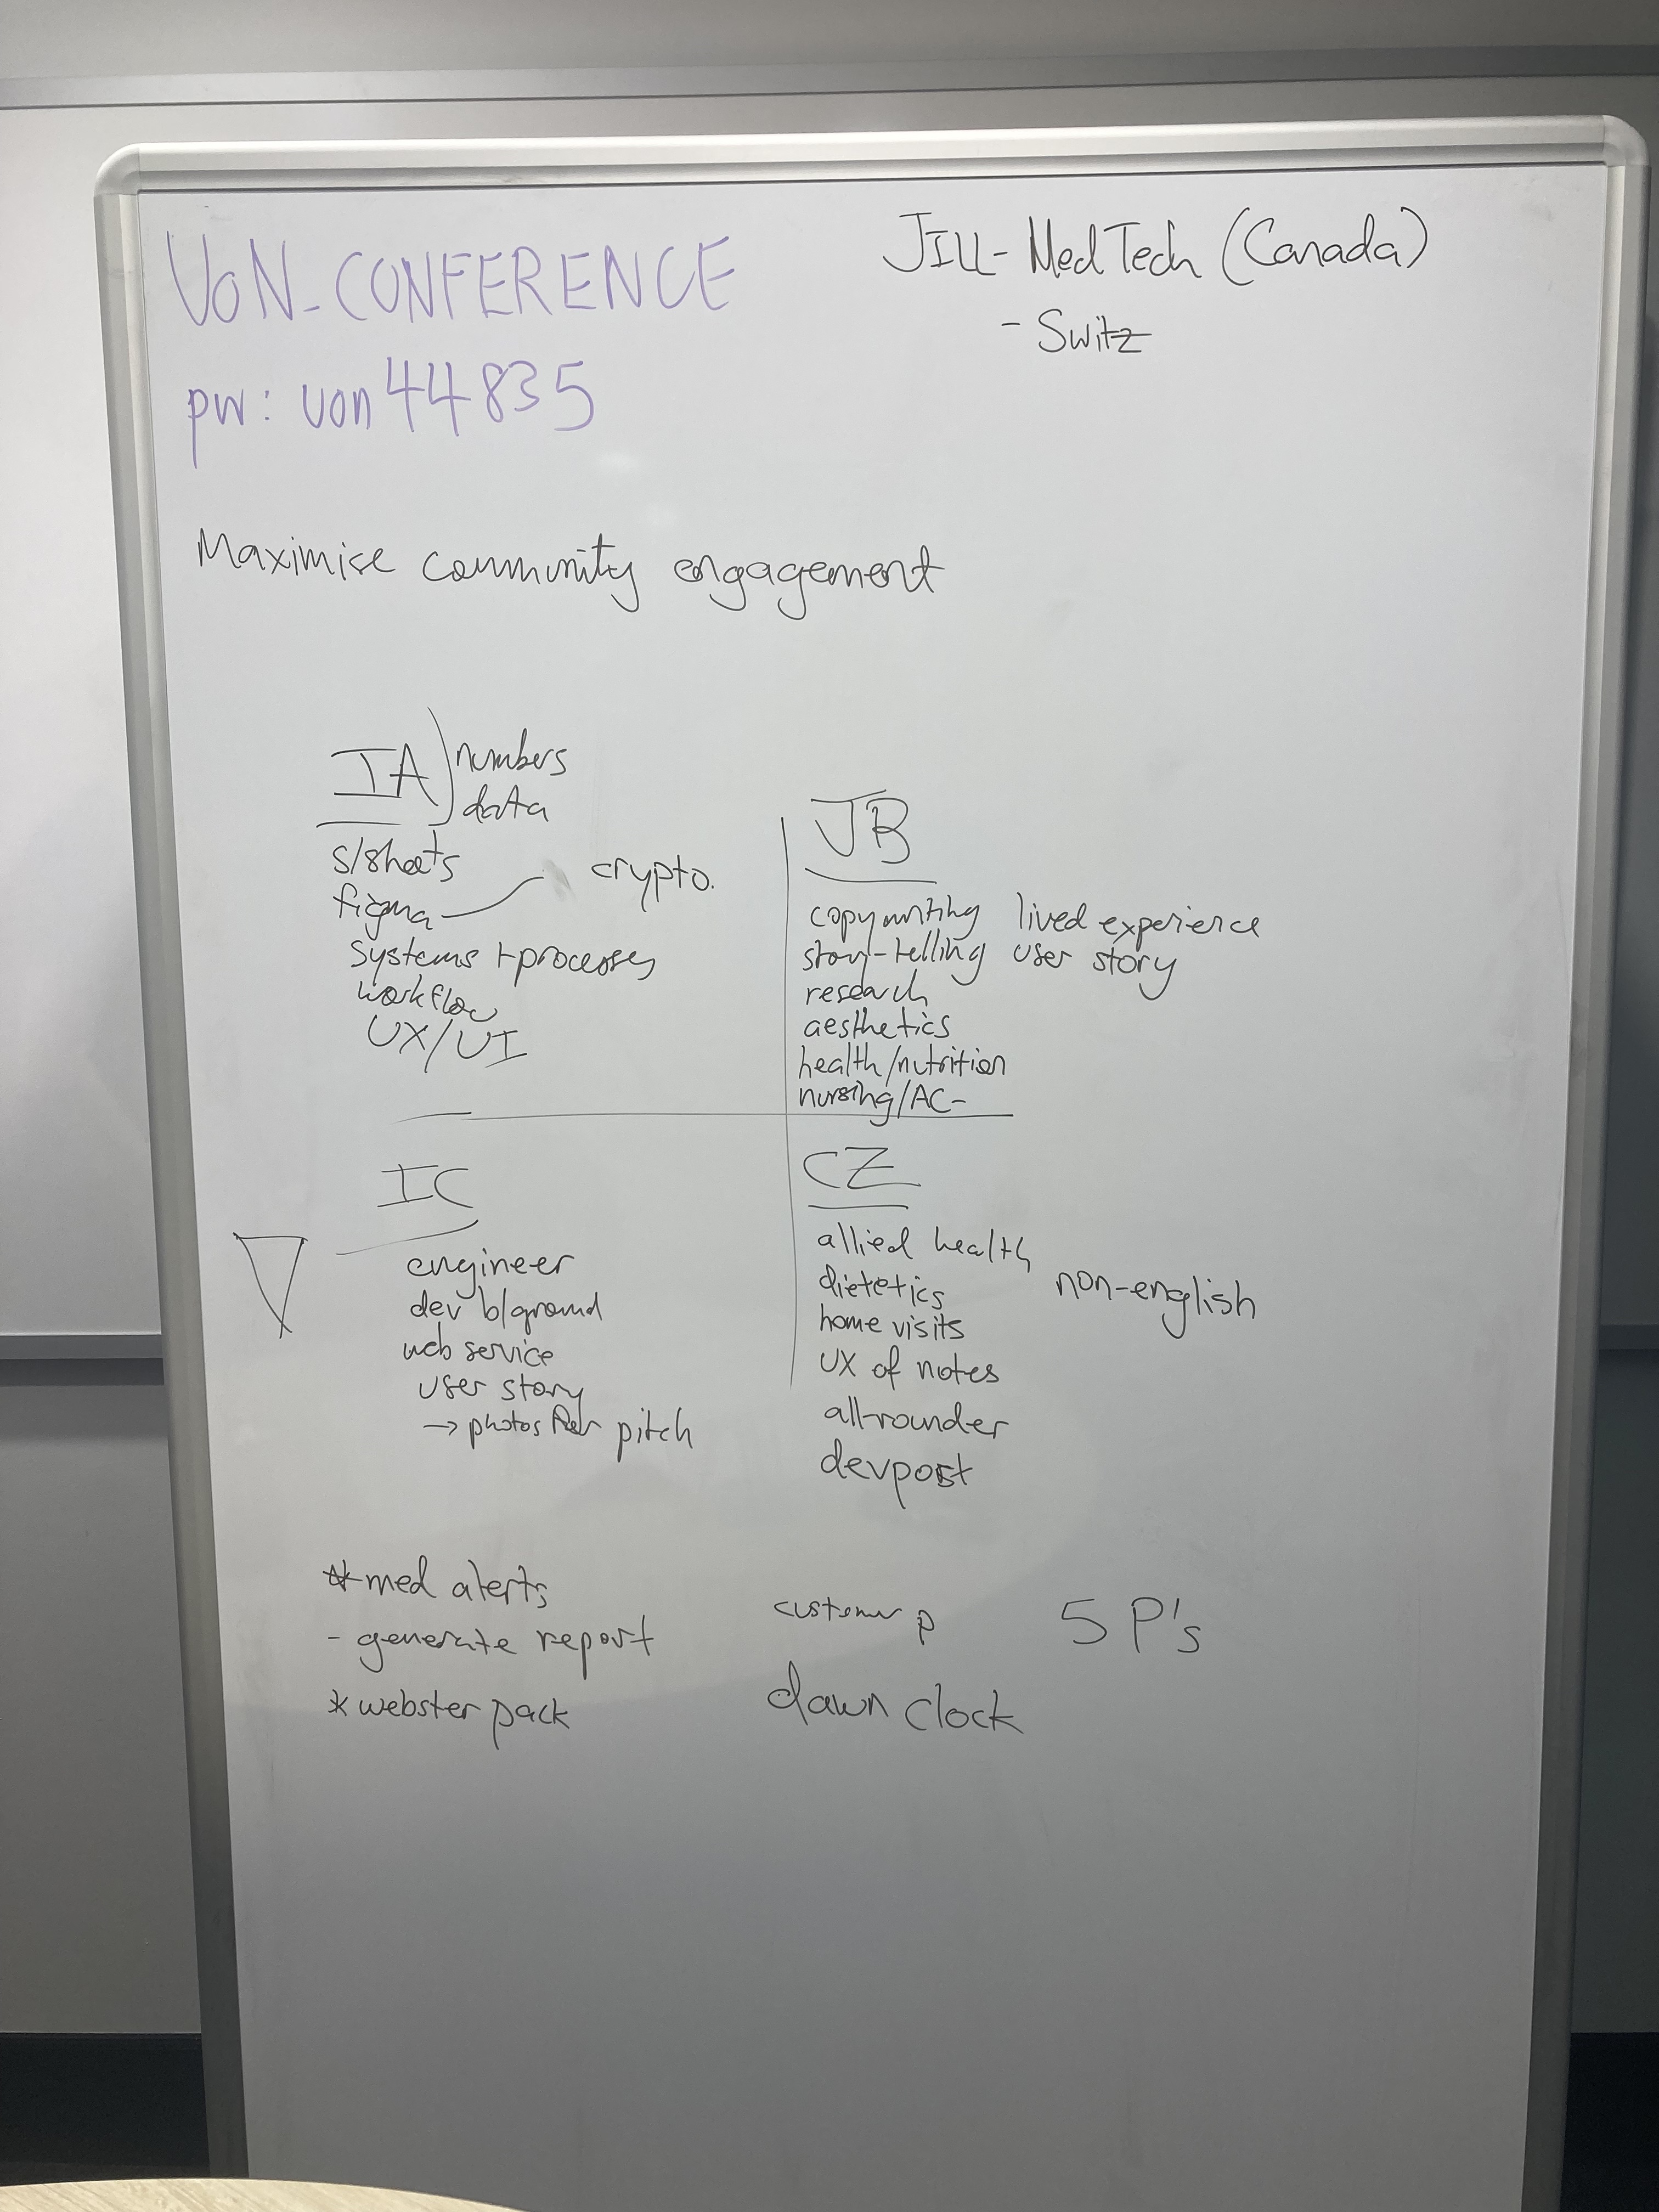 VoN-CONFERENCE
pw: von44835
JILL- MedTech (Canada)
- Switz
Maximise community engagement
IA
numbers
data
s/sheets
figma
crypto.
systems + processes
workflow
UX/UI
JB
copywriting lived experience
story-telling user story
research
aesthetics
health/nutrition
nursing/AC-
IC
engineer
dev b/ground
web service
user story
→ photos for pitch
CZ
allied health
dietetics non-english
home visits
UX of notes
all-rounder
devpost
* med alerts
- generate report
* webster pack
customer p
5 P's
dawn clock